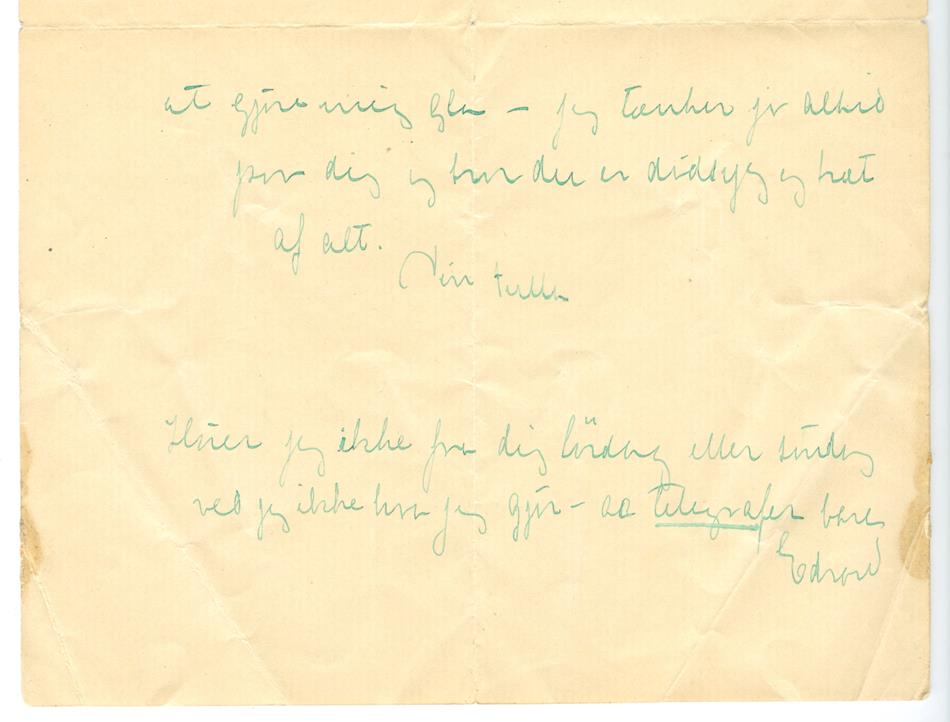 at gjøre mig gla – jeg tænker jo altid
paa dig og hvor du er dødssyg og træt
af alt.
Din Tulla
Hører jeg ikke fra dig lördag eller søndag
ved jeg ikke hva jeg gjør – aa telegrafer bare
Edvard